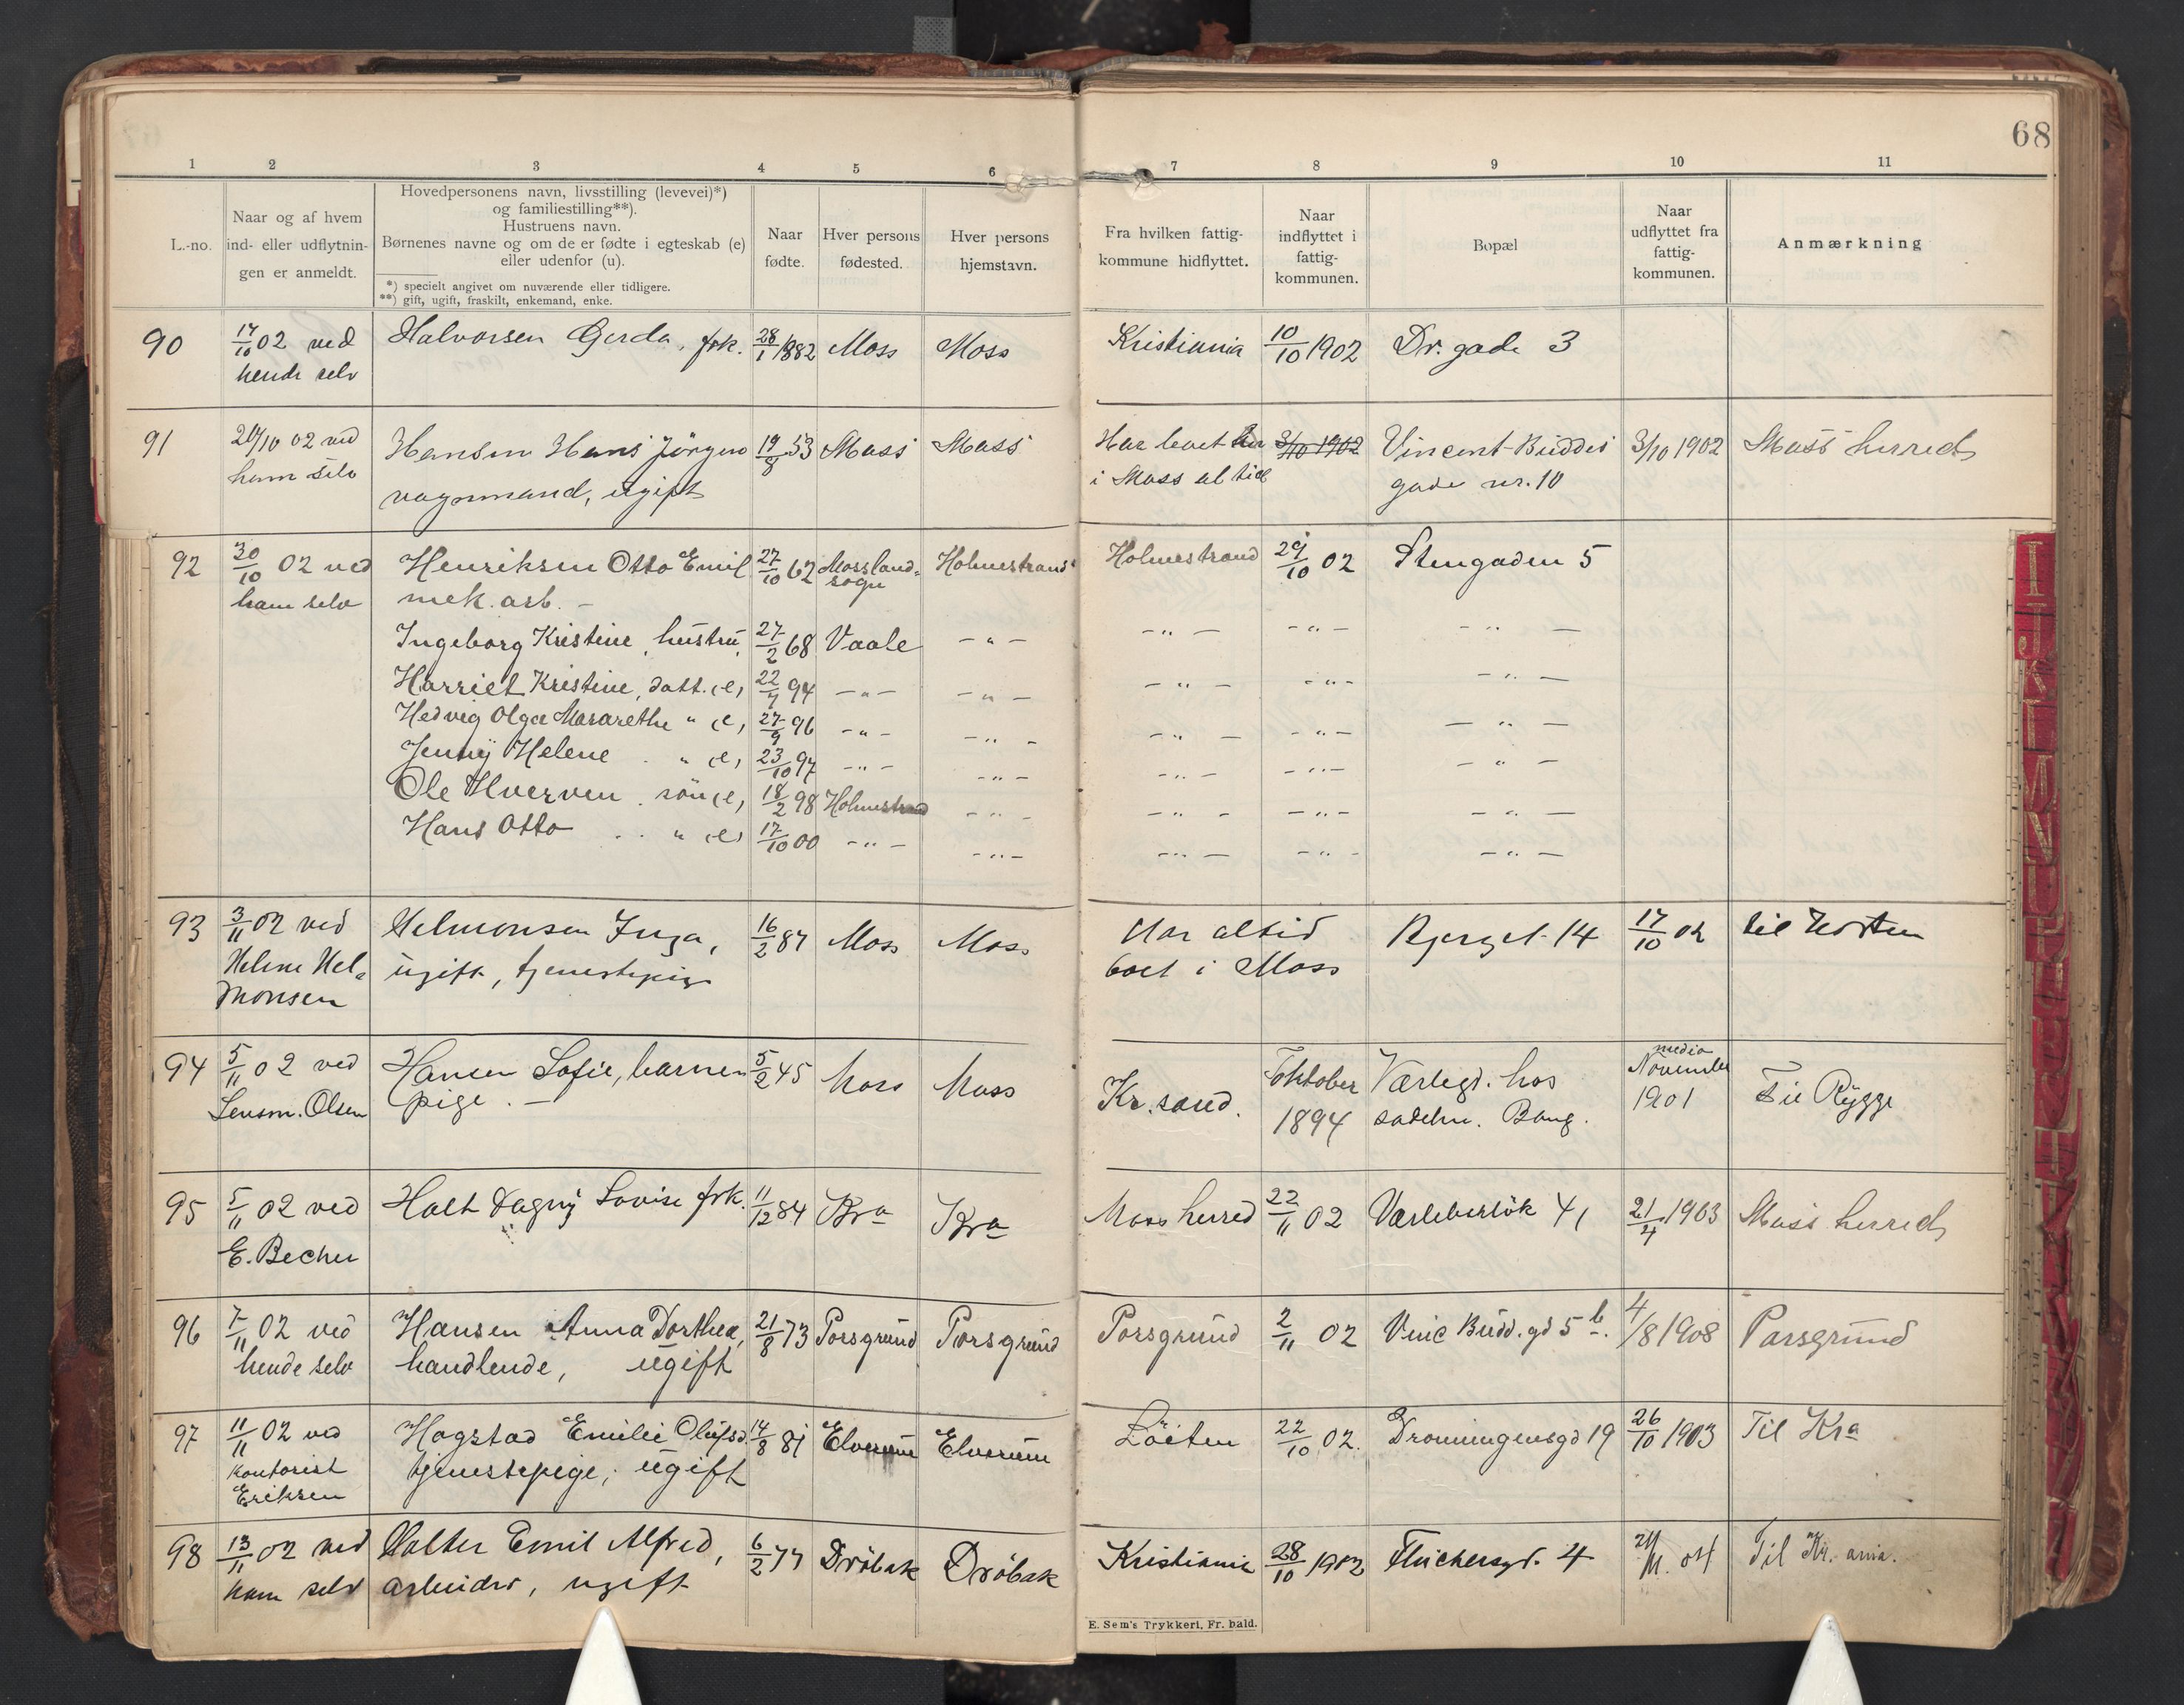 68
1 2 3 4 5 6 7 8 9 10 11
L.-no.
Naar og af hvem
ind- eller udflytnin-
gen er anmeldt.
Hovedpersonens navn, livsstilling (levevei)*)
og familiestilling**).
Hustruens navn.
Børnenes navne og om de er fødte i egteskab (e)
eller udenfor (u).
*) specielt angivet om nuværende eller tidligere.
**) gift, ugift, fraskilt, enkemand, enke.
Naar
fødte.
Hver persons
fødested.
Hver persons
hjemstavn.
Fra hvilken fattig-
kommune hidflyttet.
Naar
indflyttet i
fattig-
kommunen.
Bopæl
Naar
udflyttet fra
fattig-
kommunen.
Anmærkning
90 17/10 02 ved Halvorsen Gerda, frk. 28/1 1882 Moss Moss Kristiania 10/10 1902 Dr. gade 3
hende selv
91 /10 02 ved Hansen Hans Jörgen 19/8 53 Moss Moss Har levet her 3/10 1902 Vincent Buddes 3/10 1902 Moss herred
ham selv vognmand, ugift i Moss altid gade nr. 10
92 30/10 02 ved Henriksen Otto Emil 27/10 62 Mossland- Holmestrand Holmestrand 29/10 02 Stengaden 5
ham selv mek. arb. – sogn
Ingeborg Kristine, hustru 27/2 68 Vaale – " – – " – – " – – " –
Harriet Kristine, datt. (e) 22/7 94 – " – – " – – " – – " – – " –
Hedvig Olga Mararethe " (e) 27/9 96 – " – – " – – " – – " – – " –
Jenny Helene " (e) 23/10 97 – " – – " – – " – – " – – " –
Ole Hverven. sön (e) 18/2 98 Holmestrand – " – – " – – " – – " –
Hans Otto " (e) 17/10 00 – " – – " – – " – – " – – " –
93 3/11 02 ved Helmonsen Inga, 16/2 87 Moss Moss Har altid Bjerget 14 17/10 02 til Horten
Helene Hel- ugift, tjenestepige boet i Moss
monsen
94 5/11 02 ved Hansen Sofie, barne- 5/2 45 Moss Moss Kr. sand. Oktober Værlegt. hos media November Til Rygge
Lensm. Olsen pige. – 1894 sadelm. Bang. 1901
95 5/11 02 ved Holt Dagny Lovise frk. 11/12 84 Kra Kra Moss herred 22/11 02 Værlebertök 41 21/4 1903 Moss herred
E. Becher
96 7/11 02 ved Hansen Anna Dorthea, 21/8 73 Porsgrund Porsgrund Porsgrund 2/11 02 Vinc Budd. gd 5 b. 4/8 1908 Porsgrund
hende selv handlende, ugift
97 11/11 02 ved Hogstad Emilie Olufsd. 14/8 81 Elverum Elverum Löiten 22/10 02. Dronningensgd 19 26/10 1903 Til Kra
kontorist tjenestepige, ugift
Eriksen
98 13/11 02 ved Holter Emil Alfred, 6/2 77 Dröbak Dröbak Kristiania 28/10 1902 4 04 Til Kr. ania.
ham selv arbeider, ugift
E. Sem's Trykkeri, Fr. hald.
I J K L M N O P